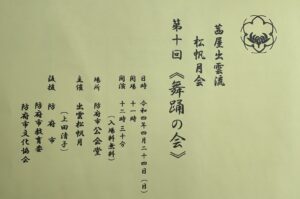 茜屋出雲流
松帆月会
第十回《舞踊の会》
日時 令和四年四月二十四日(日)
開場 十一時 (入場料無料)
開演 十二時三十分
場所 防府市公会堂
主催 出雲松帆月
(上田清子)
後援 防府市
防府市教育委
防府市文化協会